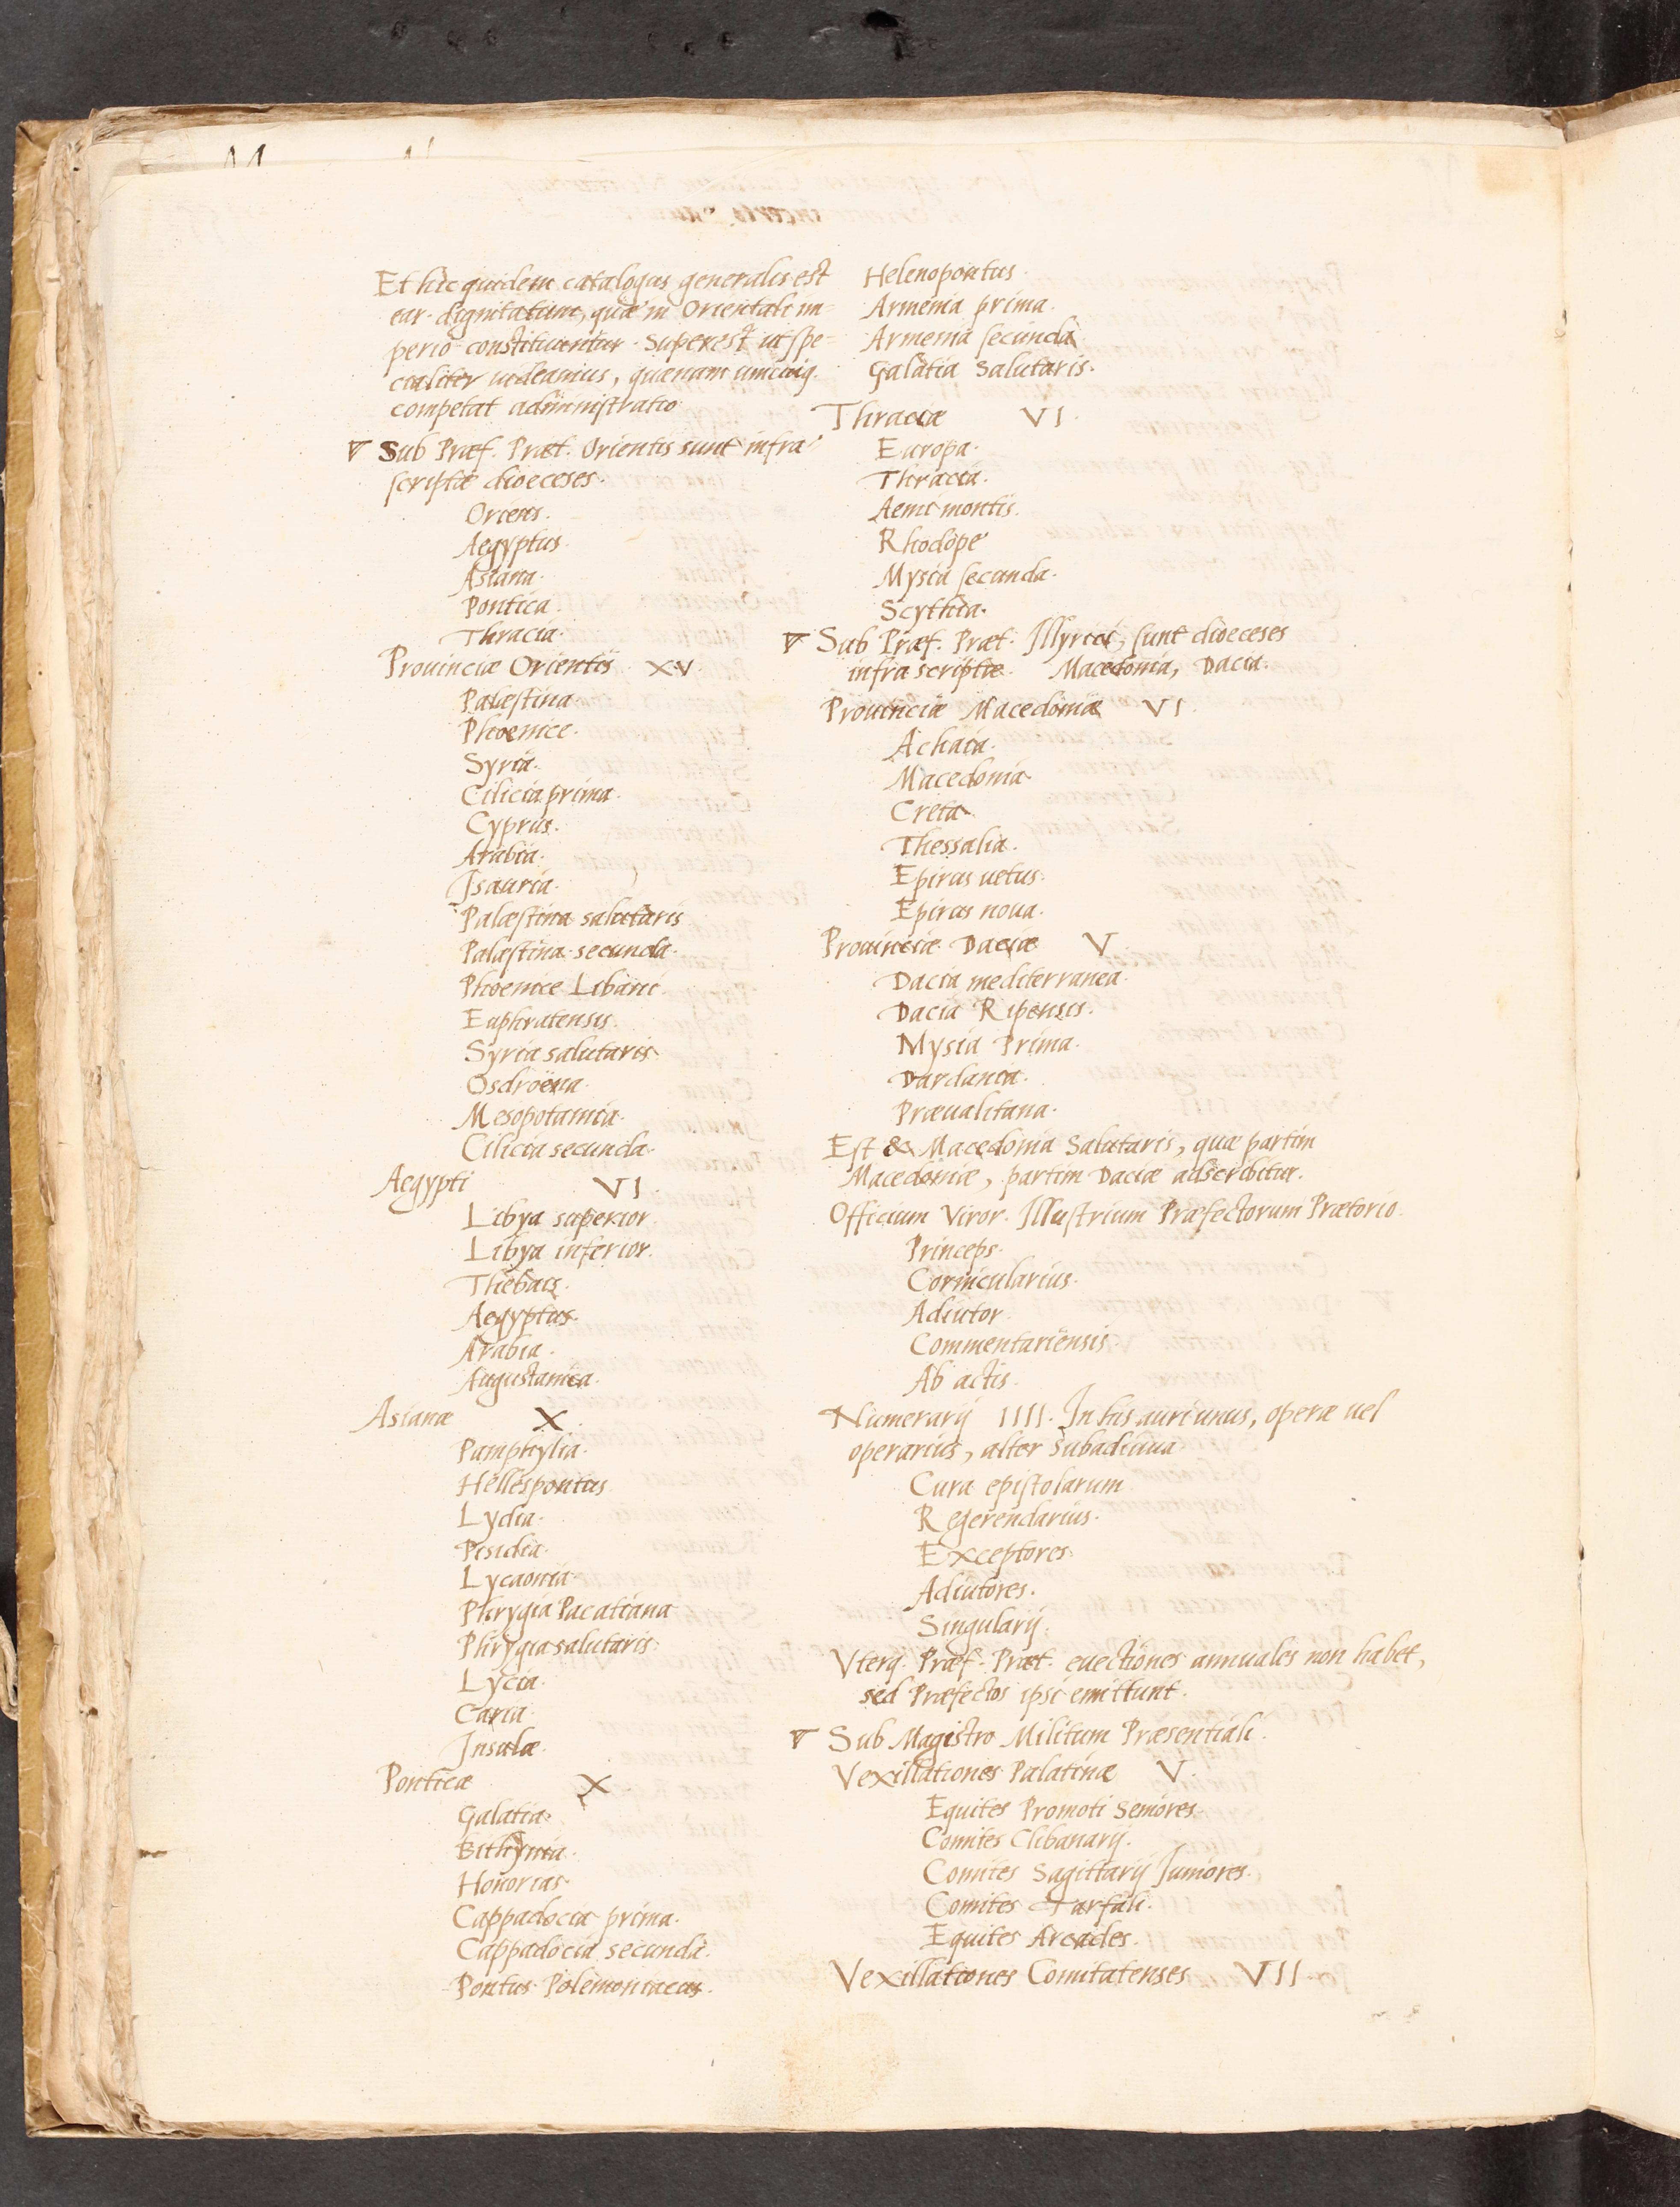 Et hic quidem catalogus generalis est
ear. dignitatum, quæ in Orientali im-
perio constituuntur. Superest ut spe-
cialiter uideamus, quænam unicuiq.
competat administratio
∇ Sub Præf. Præt. Orientis sunt infra
scriptæ dioeceses.
Oriens.
Aegyptus.
Asiana.
Pontica.
Thracia.
Prouinciæ Orientis XV.
Palæstina.
Phoenice.
Syria.
Cilicia prima.
Cyprus.
Arabia.
Isauria.
Palæstina salutaris
Palæstina secunda.
Phoenice Libani.
Euphratensis.
Syria salutaris
Osdroëna.
Mesopotamia.
Cilicia secunda.
Aegypti VI.
Libya superior.
Libya inferior.
Thebais.
Aegyptus.
Arabia.
Augustanica.
Asianæ X.
Pamphylia.
Hellespontus
Lydia.
Pisidia.
Lycaonia.
Phrygia Pacatiana
Phrygia salutaris.
Lycia.
Caria.
Insulæ.
Ponticæ X.
Galatia.
Bithynia.
Honorias.
Cappadocia prima.
Cappadocia secunda.
Pontus Polemoniacus.
Helenopontus.
Armenia prima.
Armenia secunda
Galatia Salutaris.
Thraciæ VI.
Europa.
Thracia.
Aemi montis.
Rhodope
Mysia secunda.
Scythia.
∇ Sub Præf. Præt. Illyrici, sunt dioeceses
infra scriptæ. Macedonia, Dacia.
Prouinciæ Macedoniæ VI.
Achaia.
Macedonia.
Creta.
Thessalia.
Epirus uetus.
Epirus noua.
Prouinciæ Daciæ V.
Dacia mediterranea.
Dacia Ripensis.
Mysia Prima.
Dardania.
Præualitana.
Est & Macedonia Salutaris, quæ partim
Macedoniæ, partim Daciæ adscribitur.
Officium Viror. Illustrium Præfectorum Prætorio.
Princeps.
Cornicularius.
Adiutor.
Commentariensis.
Ab actis.
Numerarij IIII. In his auri unus, operæ uel
operarius, alter subadiuua
Cura epistolarum
Regerendarius.
Exceptores.
Adiutores.
Singularij.
Vterq. Præf. Præt. euectiones annuales non habet,
sed Præfectos ipsi emittunt.
∇ Sub Magistro Militum Præsentiali.
Vexillationes Palatinæ V.
Equites Promoti Seniores.
Comites Clibanarij.
Comites Sagittarij Iuniores.
Comites Tarfali.
Equites Arcades.
Vexillationes Comitatenses VII.